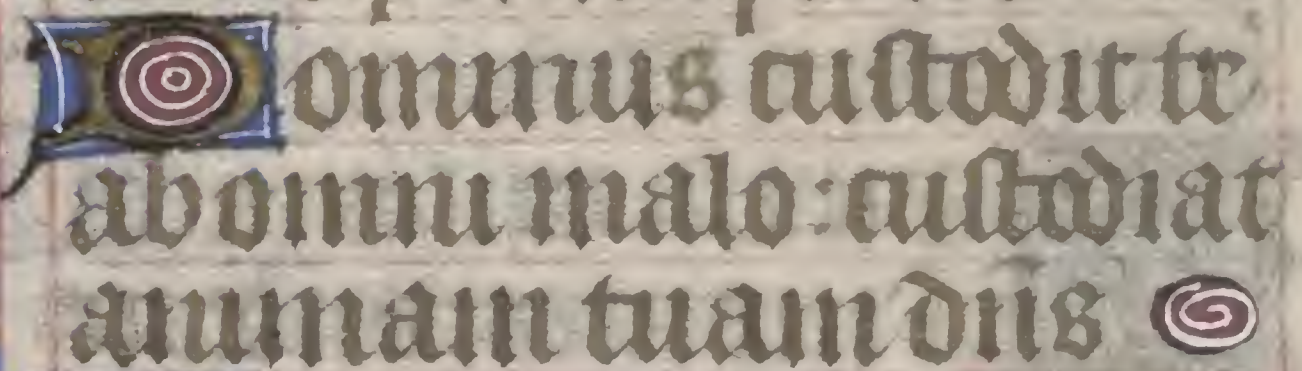 Dominus custodit te
ab omni malo : custodiat
animam tuam dns